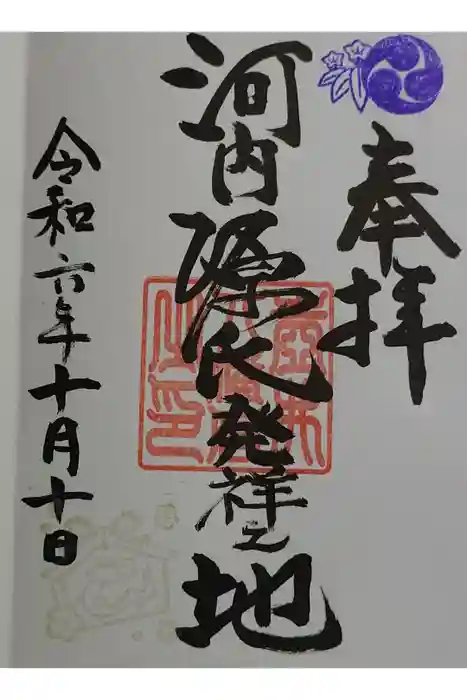 奉拝
河内源氏発祥之地
令和六年十月十日